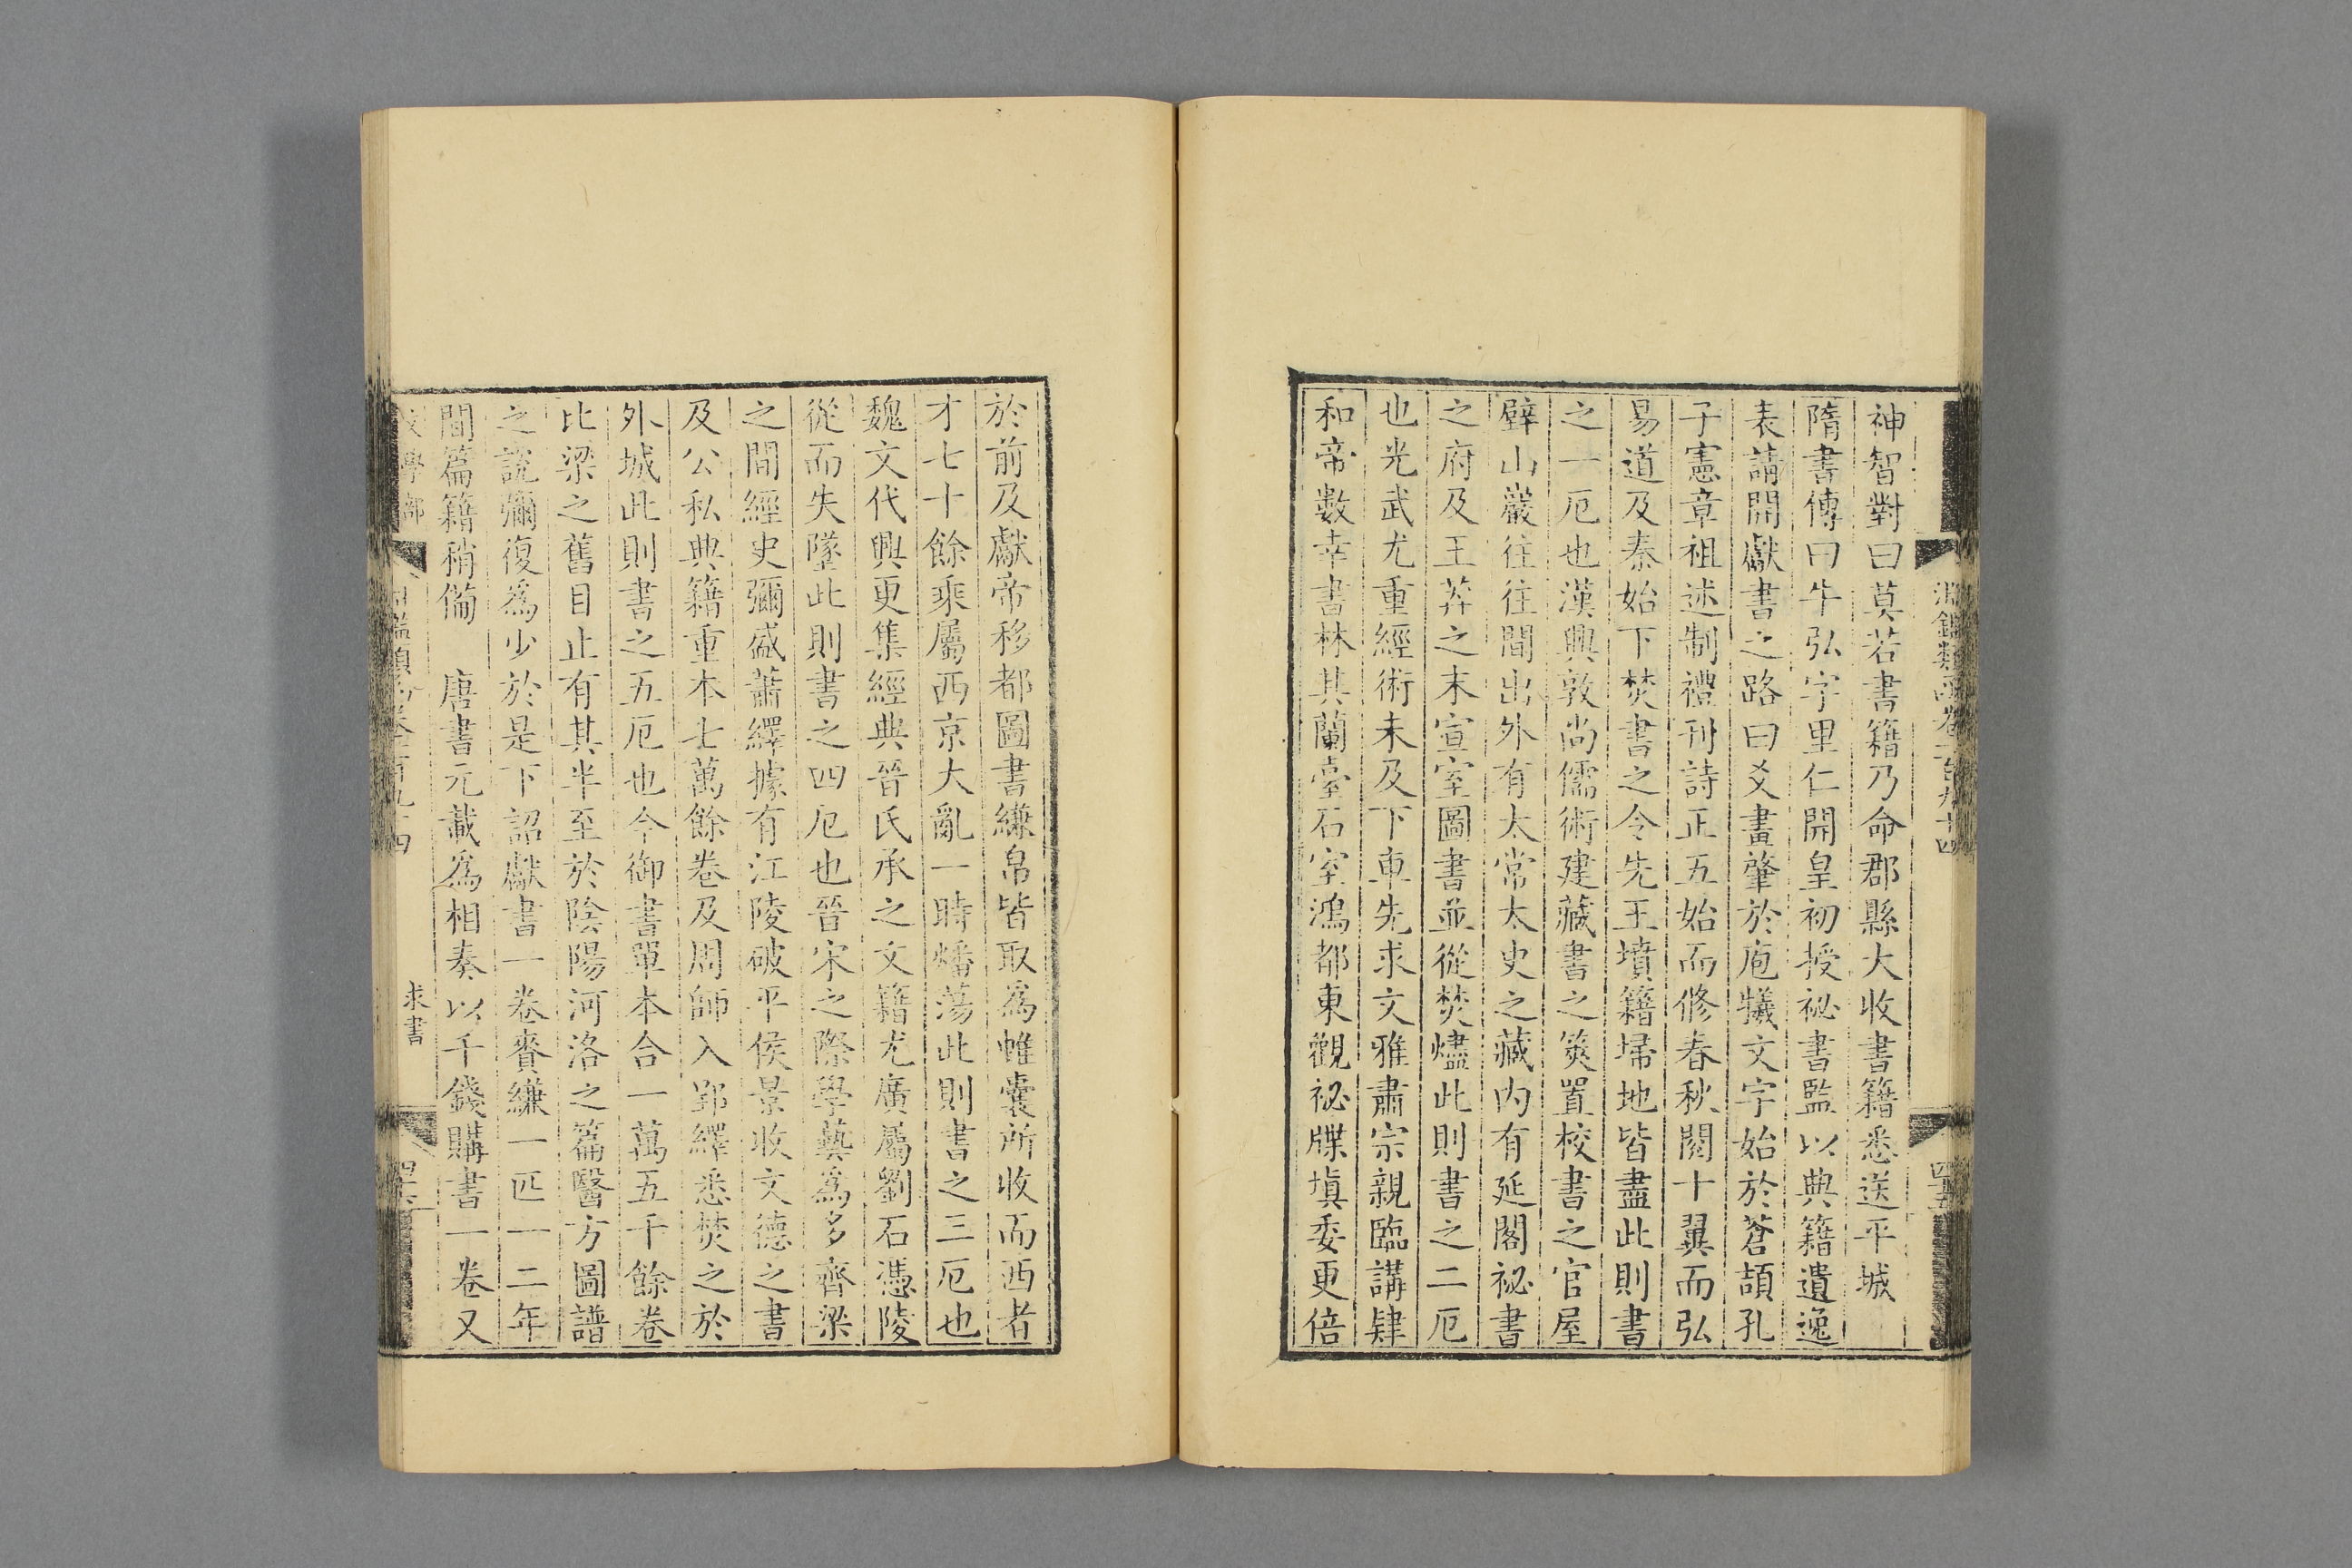 淵鑑類函卷一百九十四
神智對曰莫若書籍乃命郡縣大收書籍悉送平城
隋書傳曰牛弘字里仁開皇初授祕書監以典籍遺逸
表請開獻書之路曰爻畫肇於庖犧文字始於蒼頡孔
子憲章祖述制禮刊詩正五始而修春秋闡十翼而弘
易道及秦始下焚書之令先王墳籍埽地皆盡此則書
之一厄也漢興敦尚儒術建藏書之筴置校書之官屋
壁山巖往往間出外有太常太史之藏內有延閣祕書
之府及王莽之末宣室圖書並從焚燼此則書之二厄
也光武尤重經術未及下車先求文雅肅宗親臨講肄
和帝數幸書林其蘭臺石室鴻都東觀祕牒塡委更倍
於前及獻帝移都圖書縑帛皆取爲帷囊所收而西者
才七十餘乘屬西京大亂一時燔蕩此則書之三厄也
魏文代興更集經典晉氏承之文籍尤廣屬劉石憑陵
從而失墜此則書之四厄也晉宋之際學藝爲多齊梁
之間經史彌盛蕭繹據有江陵破平侯景收文德之書
及公私典籍重本七萬餘卷及周師入郢繹悉焚之於
外城此則書之五厄也今御書單本合一萬五千餘卷
比梁之舊目止有其半至於陰陽河洛之篇醫方圖譜
之說彌復爲少於是下詔獻書一卷賚縑一匹一二年
間篇籍稍備　唐書元載爲相奏以千錢購書一卷又
求書